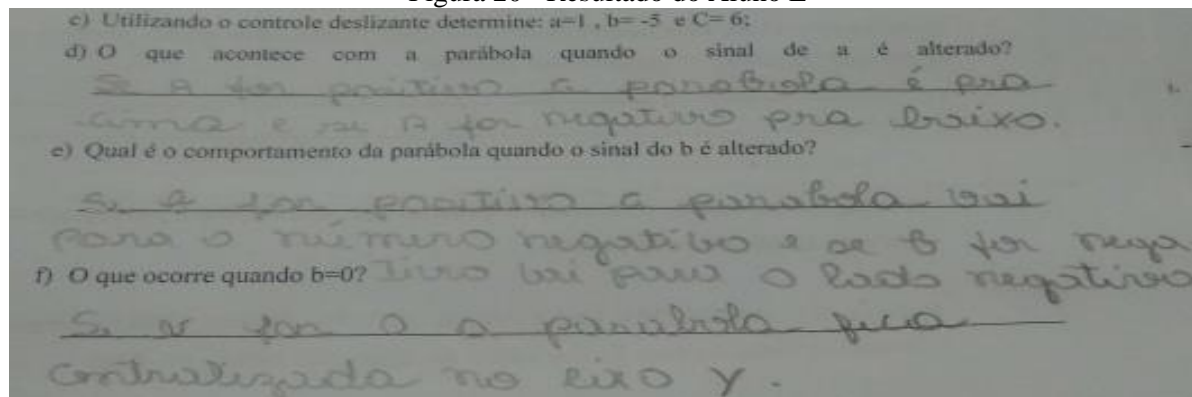 Figura 20 - Resultado do Aluno E
c) Utilizando o controle deslizante determine: a=1 , b= -5 e C= 6;
d) O que acontece com a parábola quando o sinal de a é alterado?
Se a for positivo a parabiola é pra
cima e se a for negativo pra baixo.
e) Qual é o comportamento da parábola quando o sinal do b é alterado?
Se for positivo a parabola vai
para o número negatibo e se b for nega
f) O que ocorre quando b=0? tivo vai para o lado negativo
Se for 0 a parabola fica
centralizada no eixo y.